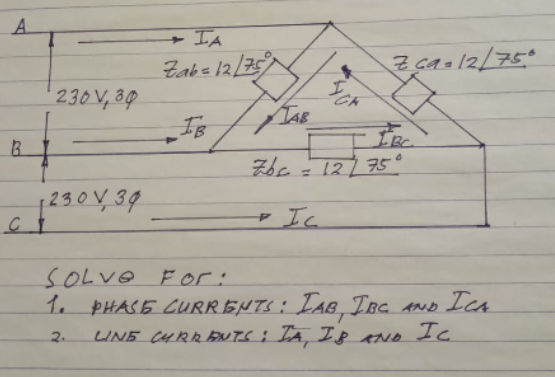 A
IA
Zab = 12∠75°
Zca = 12∠75°
230V, 3φ
ICA
IAB
IB
IBC
B
Zbc = 12∠75°
230V, 3φ
IC
C
SOLVE FOR:
1. PHASE CURRENTS: IAB, IBC AND ICA
2. LINE CURRENTS: IA, IB AND IC